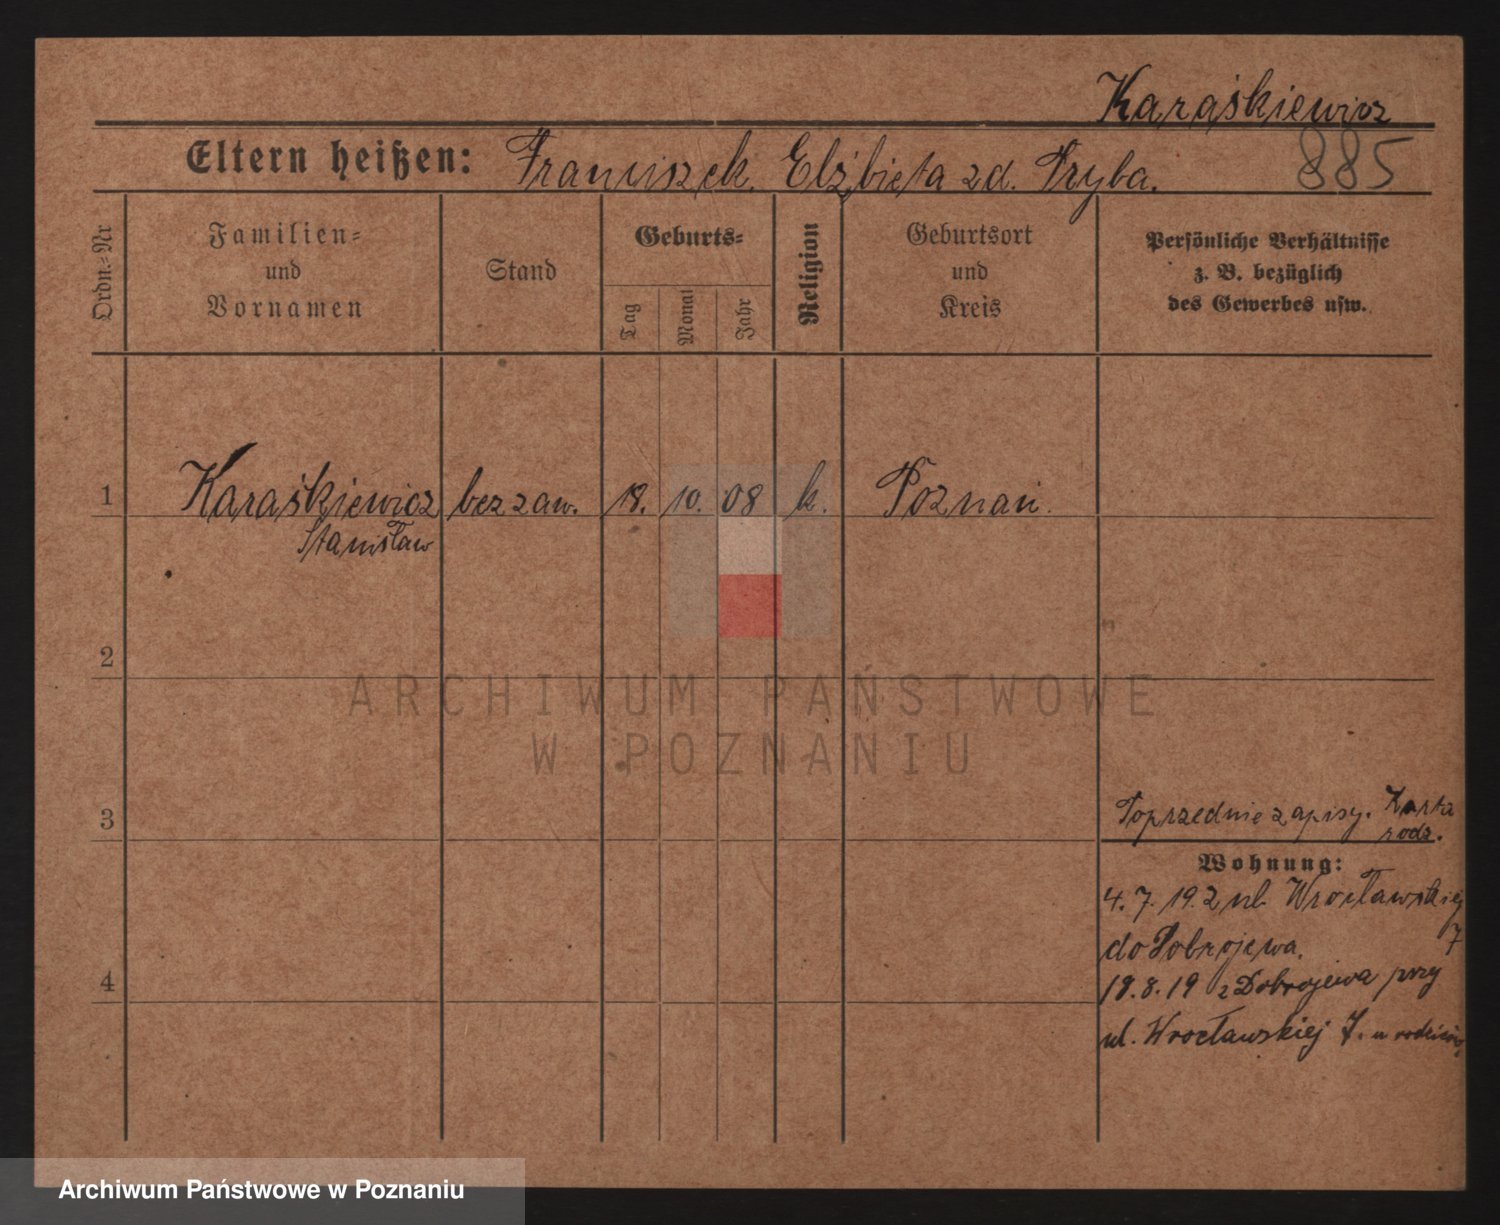 Karaśkiewicz
Eltern heißen: Franciszek. Elżbieta zd. Pryba.
885
Ordn.-Nr
Familien-
und
Vornamen
Stand
Geburts-
Tag
Monat
Jahr
Religion
Geburtsort
und
Kreis
Persönliche Verhältnisse
z. B. bezüglich
des Gewerbes usw.
1 Karaśkiewicz bez zaw. 18. 10. 08 k. Poznań.
Stanisław
2
ARCHIWUM PAŃSTWOWE
W POZNANIU
3
Poprzednie zapisy. Karta
rodz.
Wohnung:
4. 7. 19. z ul. Wrocławskiej
7
do Dobrojewa.
4
18. 8. 19 z Dobrojewa przy
ul. Wrocławskiej 7. u rodziców
Archiwum Państwowe w Poznaniu